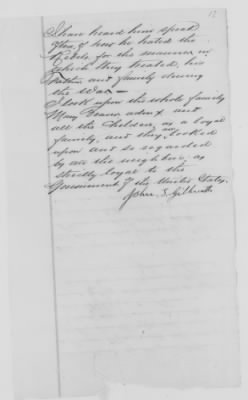 I have heard him speak
often of how he hated the
Rebels for the manner in
which they treated, his
Father and family during
the War—
I look upon the whole family
Mary admx and
all the children, as a loyal
family, and they are looked
upon and so regarded
by all the neighbors, as
strictly loyal to the
Government of the United States.
John S.